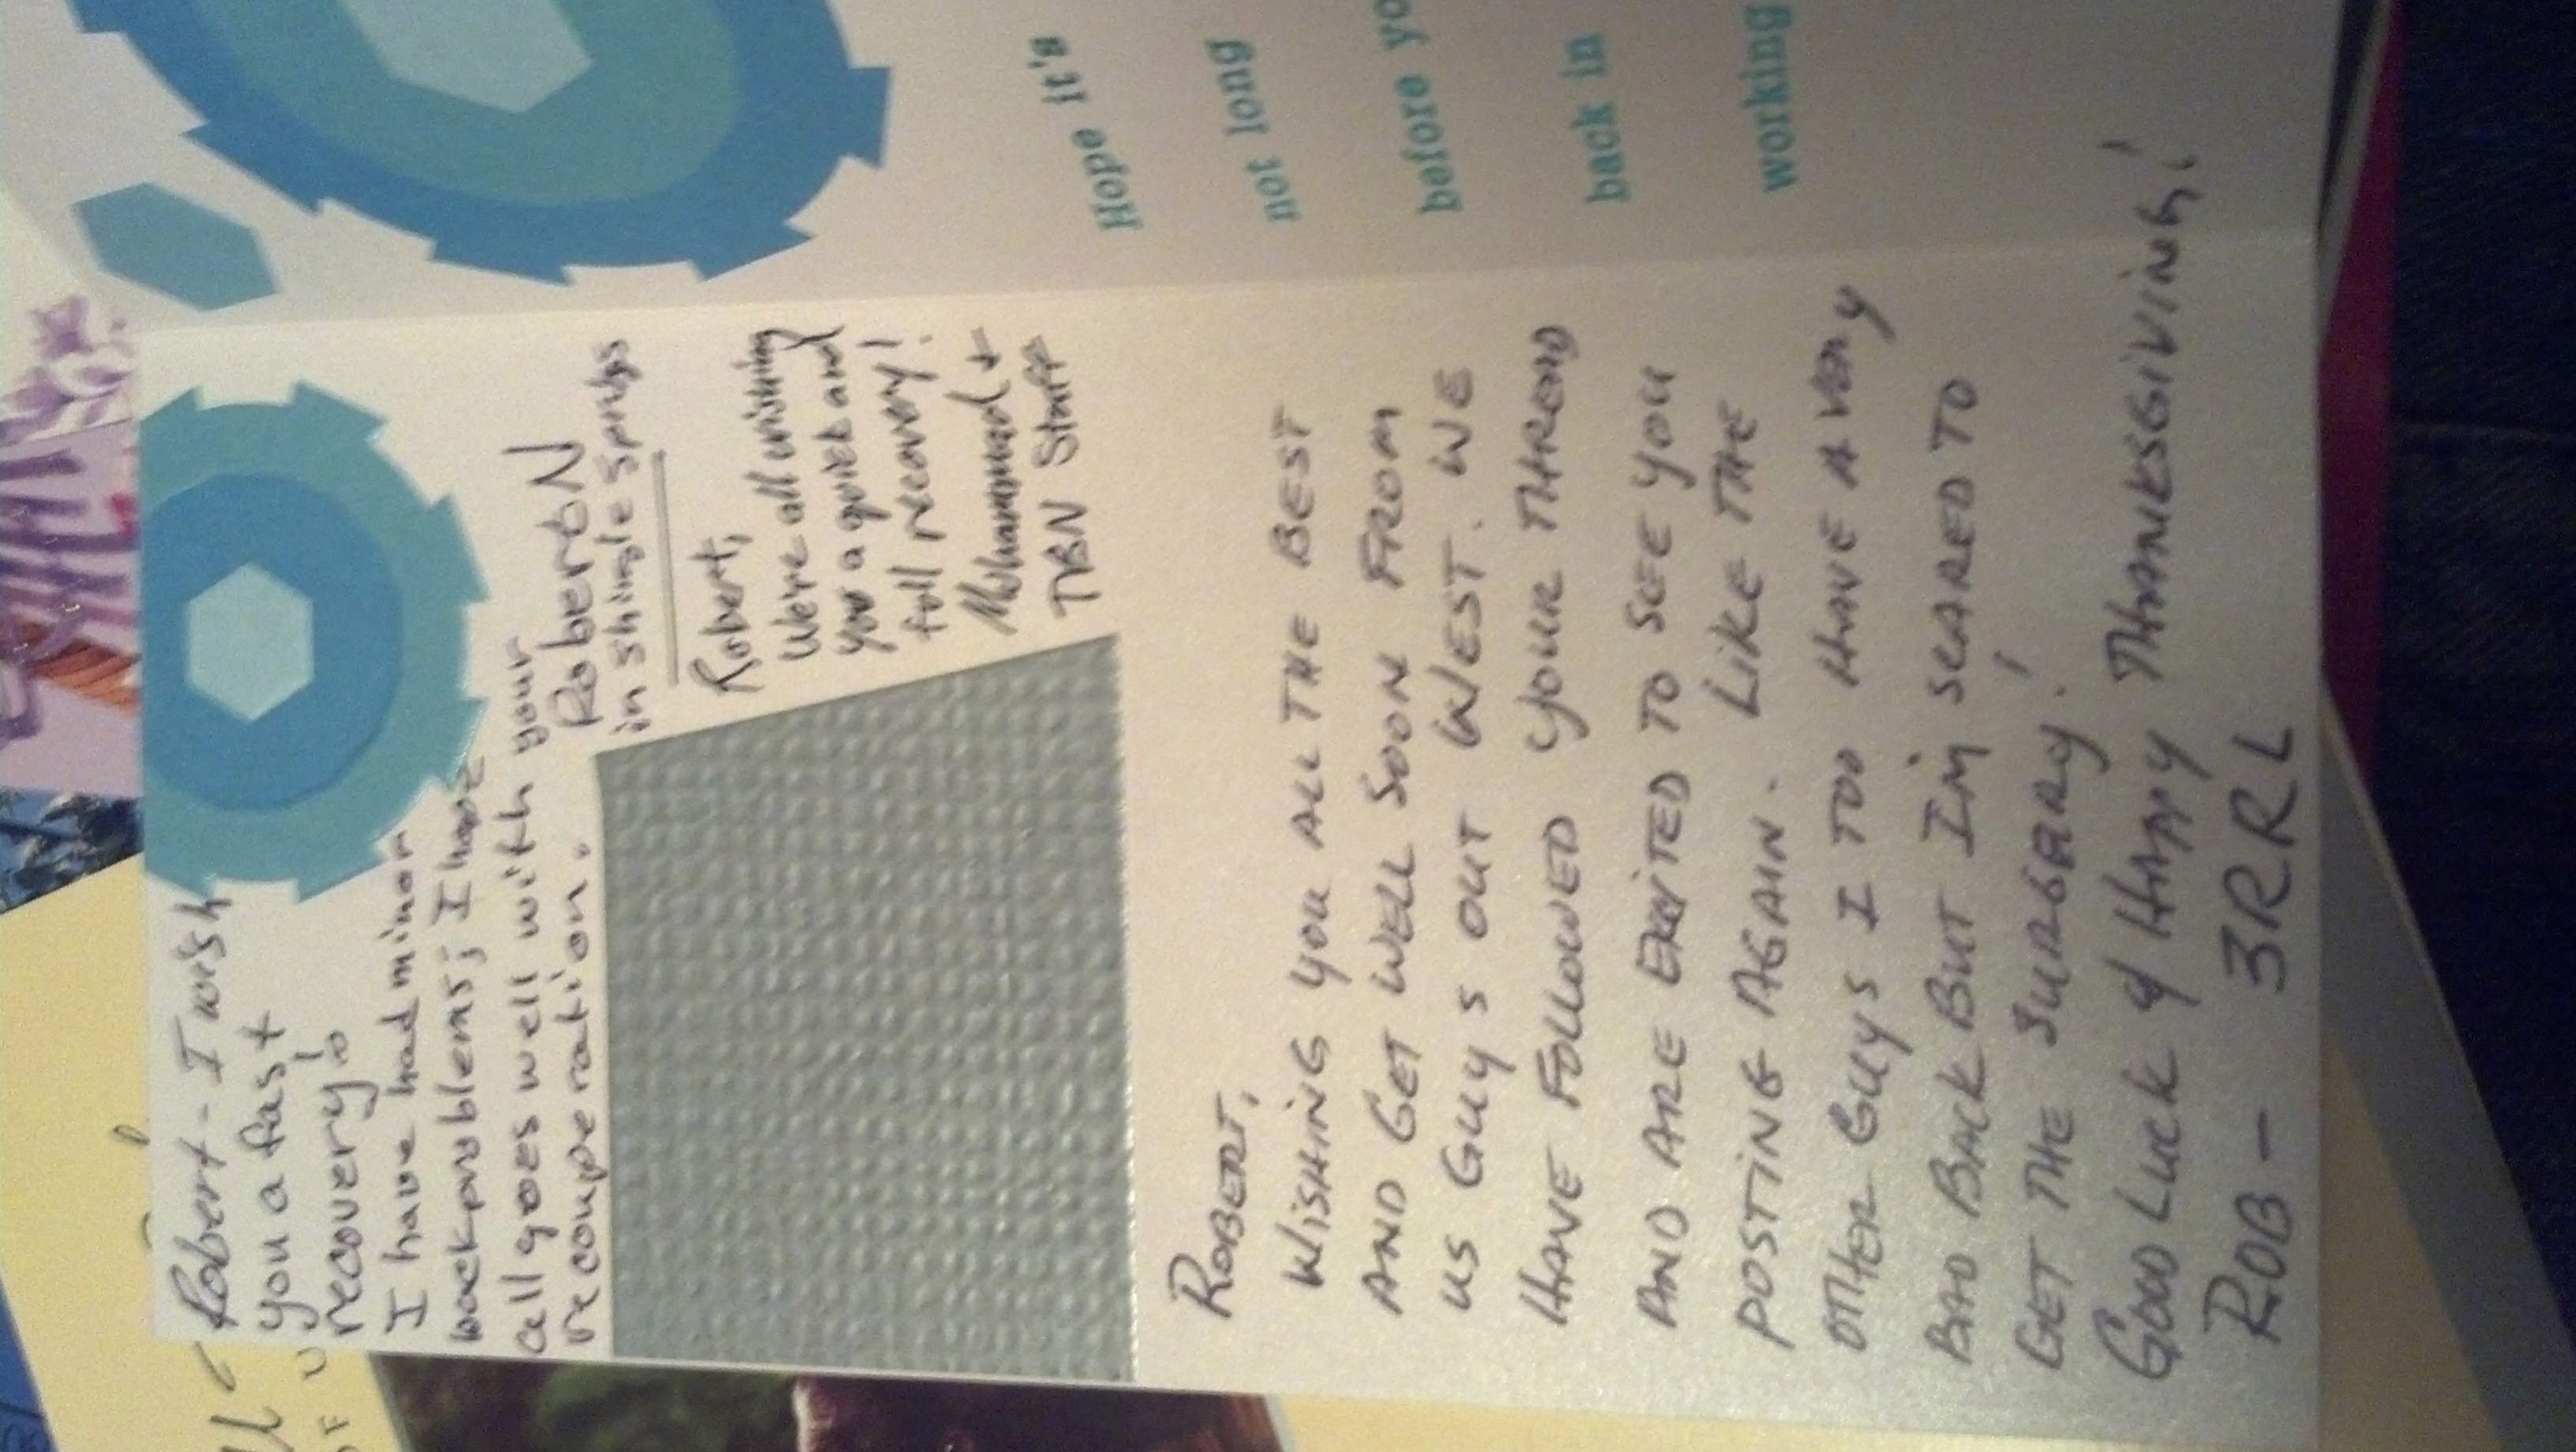 Robert - I wish
you a fast
recovery!
I have had minor
back problems; I hope
all goes well with your
recouperation.
RobertN
in shingle springs
Robert,
We're all wishing
you a quiet and
full recovery!
Muhammad +
TBN Staff
ROBERT,
WISHING YOU ALL THE BEST
AND GET WELL SOON FROM
US GUYS OUT WEST. WE
HAVE FOLLOWED YOUR THREAD
AND ARE EXCITED TO SEE YOU
POSTING AGAIN. LIKE THE
OTHER GUYS I TOO HAVE A VERY
BAD BACK BUT IM SCARED TO
GET THE SURGERY!
GOOD LUCK & HAPPY THANKESGIVING!
ROB - 3RRL
Hope it's
not long
before yo
back in
working